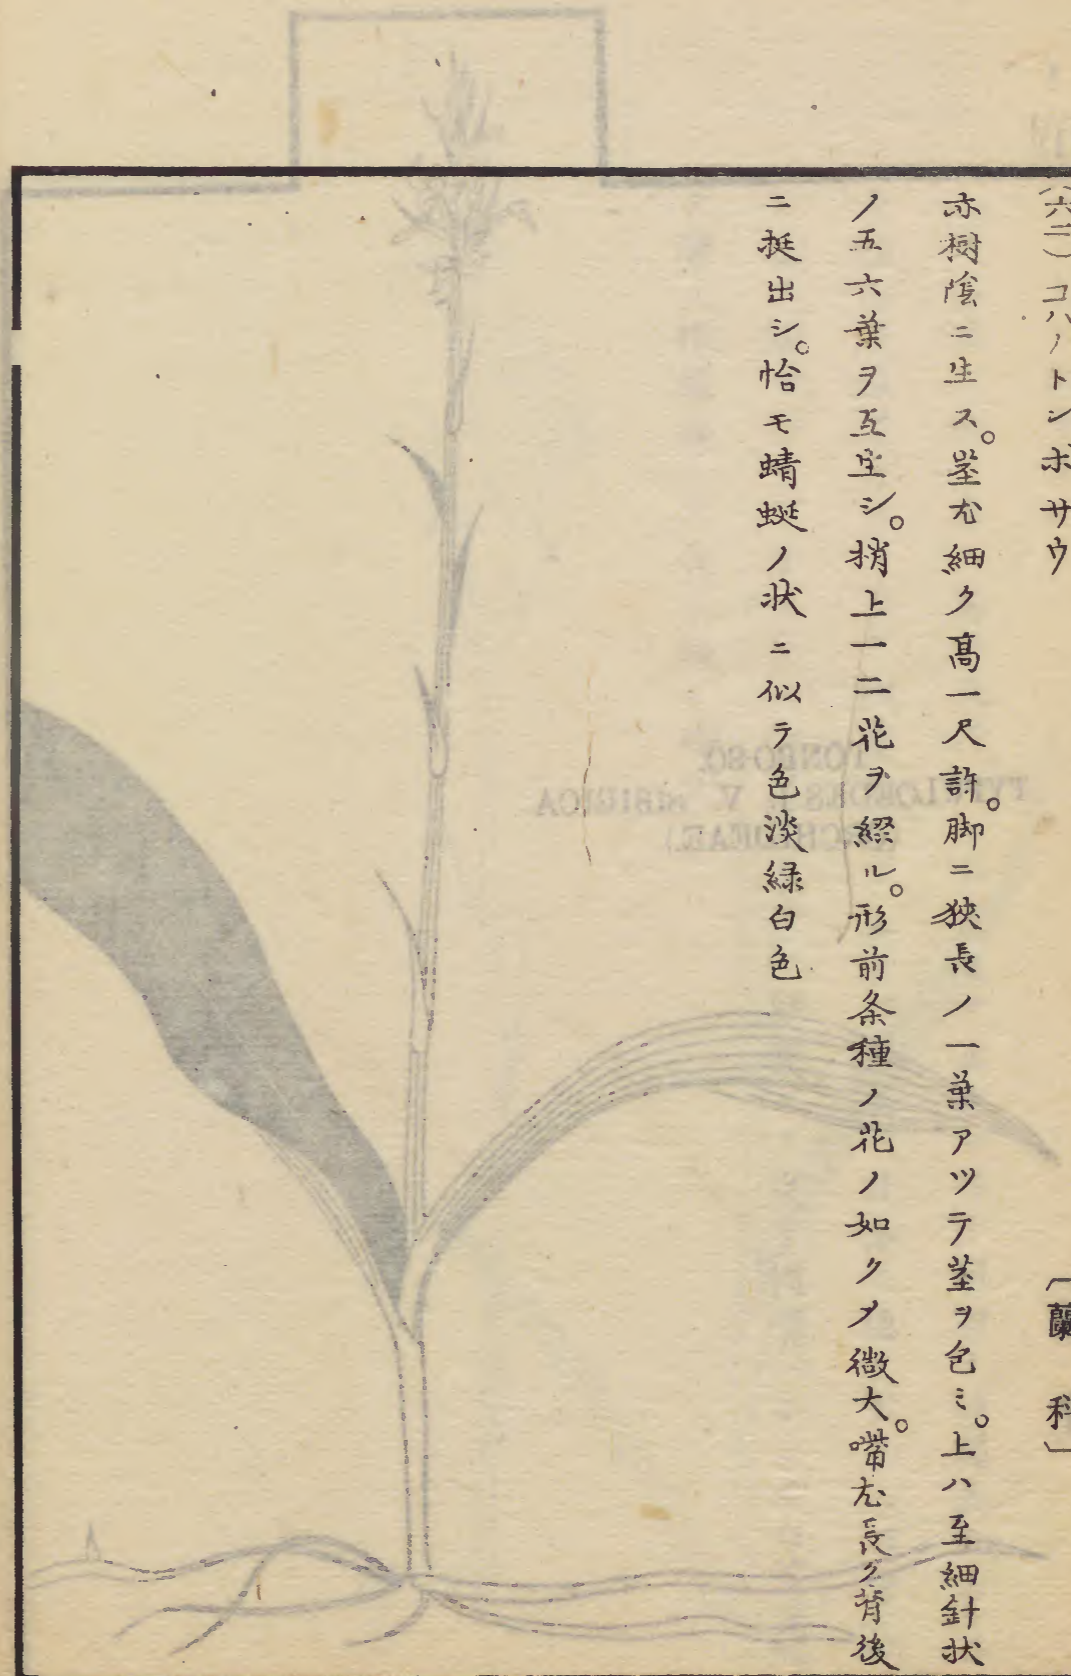 (六二)コハノトンボサウ 〔蘭科〕
亦樹陰ニ生ス。茎尤細ク高一尺許。脚ニ狹長ノ一葉アツテ茎ヲ包ミ。上ハ至細針状
ノ五六葉ヲ互生シ。梢上一二花ヲ綴ル。形前条種ノ花ノ如クメ微大。嘴尤長ク背後
ニ挺出シ。恰モ蜻蜓ノ状ニ似テ色淡緑白色